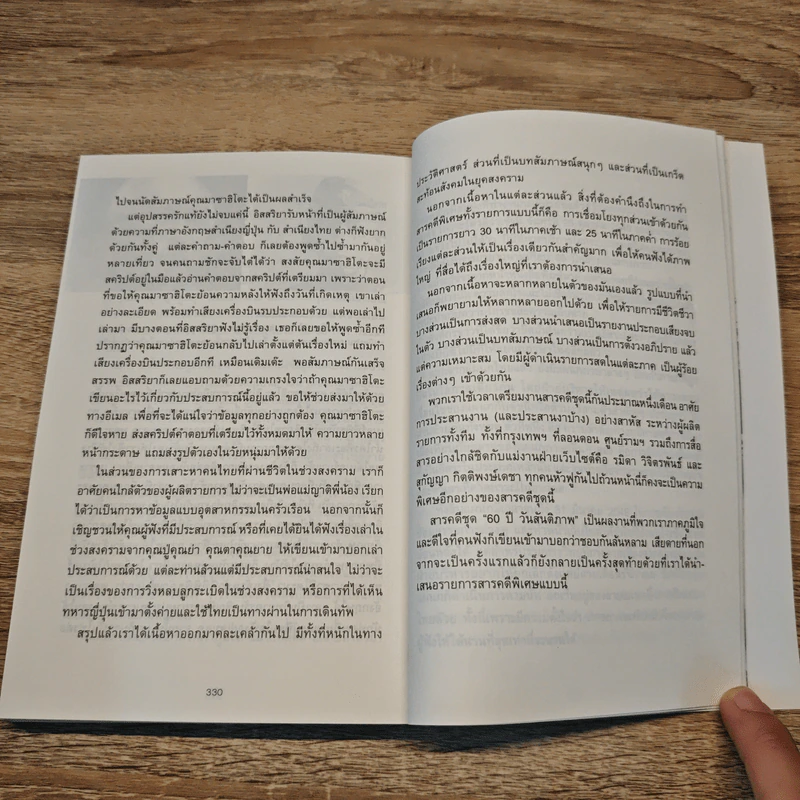 ไปจนนัดสัมภาษณ์คุณมาซาฮิโตะได้เป็นผลสำเร็จ
แต่อุปสรรคแท้ยังไม่จบแค่นี้ อิสสริยารับหน้าที่เป็นผู้สัมภาษณ์
ด้วยความที่ภาษาอังกฤษสำเนียงญี่ปุ่น กับ สำเนียงไทย ต่างก็ฟังยาก
ด้วยกันทั้งคู่ แต่ละคำถาม-คำตอบ ก็เลยต้องพูดซ้ำไปซ้ำมากันอยู่
หลายเที่ยว จนคนถามชักจะจับได้ได้ว่า สงสัยคุณมาซาฮิโตะจะมี
สคริปต์อยู่ในมือแล้วอ่านคำตอบจากสคริปต์ที่เตรียมมา เพราะว่าตอน
ที่ขอให้คุณมาซาฮิโตะย้อนความหลังให้ฟังถึงวันที่เกิดเหตุ เขาเล่า
อย่างละเอียด พร้อมทำเสียงเครื่องบินรบประกอบด้วย แต่พอเล่าไป
เล่ามา มีบางตอนที่อิสสริยาฟังไม่รู้เรื่อง เธอก็เลยขอให้พูดซ้ำอีกที
ปรากฏว่าคุณมาซาฮิโตะย้อนกลับไปเล่าตั้งแต่ต้นเรื่องใหม่ แถมทำ
เสียงเครื่องบินประกอบอีกที เหมือนเดิมเด๊ะ พอสัมภาษณ์กันเสร็จ
สรรพ อิสสริยาก็เลยแอบถามด้วยความเกรงใจว่าถ้าคุณมาซาฮิโตะ
เขียนอะไรไว้เกี่ยวกับประสบการณ์นี้อยู่แล้ว ขอให้ช่วยส่งมาให้ด้วย
ทางอีเมล เพื่อที่จะได้แน่ใจว่าข้อมูลทุกอย่างถูกต้อง คุณมาซาฮิโตะ
ก็ดีใจหาย ส่งสคริปต์คำตอบที่เตรียมไว้ทั้งหมดมาให้ ความยาวหลาย
หน้ากระดาษ แถมส่งรูปตัวเองในวัยหนุ่มมาให้ด้วย
ในส่วนของการเสาะหาคนไทยที่ผ่านชีวิตในช่วงสงคราม เราก็
อาศัยคนใกล้ตัวของผู้ผลิตรายการ ไม่ว่าจะเป็นพ่อแม่ญาติพี่น้อง เรียก
ได้ว่าเป็นการหาข้อมูลแบบอุตสาหกรรมในครัวเรือน นอกจากนั้นก็
เชิญชวนให้คุณผู้ฟังที่มีประสบการณ์ หรือที่เคยได้ยินได้ฟังเรื่องเล่าใน
ช่วงสงครามจากคุณปู่คุณย่า คุณตาคุณยาย ให้เขียนเข้ามาบอกเล่า
ประสบการณ์ด้วย แต่ละท่านล้วนแต่มีประสบการณ์น่าสนใจ ไม่ว่าจะ
เป็นเรื่องของการวิ่งหลบลูกระเบิดในช่วงสงคราม หรือการที่ได้เห็น
ทหารญี่ปุ่นเข้ามาตั้งค่ายและใช้ไทยเป็นทางผ่านในการเดินทัพ
สรุปแล้วเราได้เนื้อหาออกมาคละเคล้ากันไป มีทั้งที่หนักในทาง
330
ประวัติศาสตร์ ส่วนที่เป็นบทสัมภาษณ์สนุกๆ และส่วนที่เป็นเกร็ด
สะท้อนสังคมในยุคสงคราม
นอกจากเนื้อหาในแต่ละส่วนแล้ว สิ่งที่ต้องคำนึงถึงในการทำ
สารคดีพิเศษทั้งรายการแบบนี้ก็คือ การเชื่อมโยงทุกส่วนเข้าด้วยกัน
เป็นรายการยาว 30 นาทีในภาคเช้า และ 25 นาทีในภาคค่ำ การร้อย
เรียงแต่ละส่วนให้เป็นเรื่องเดียวกันสำคัญมาก เพื่อให้คนฟังได้ภาพ
ใหญ่ ที่สื่อได้ถึงเรื่องใหญ่ที่เราต้องการนำเสนอ
นอกจากเนื้อหาจะหลากหลายในตัวของมันเองแล้ว รูปแบบที่นำ
เสนอก็พยายามให้หลากหลายออกไปด้วย เพื่อให้รายการมีชีวิตชีวา
บางส่วนเป็นการส่งสด บางส่วนนำเสนอเป็นรายงานประกอบเสียงจบ
ในตัว บางส่วนเป็นบทสัมภาษณ์ บางส่วนเป็นการตั้งวงอภิปราย แล้ว
แต่ความเหมาะสม โดยมีผู้ดำเนินรายการสดในแต่ละภาค เป็นผู้ร้อย
เรื่องต่างๆ เข้าด้วยกัน
พวกเราใช้เวลาเตรียมงานสารคดีชุดนี้กันประมาณหนึ่งเดือน อาศัย
การประสานงาน (และประสานงาบ้าง) อย่างสาหัส ระหว่างผู้ผลิต
รายการทั้งทีม ทั้งที่กรุงเทพฯ ที่ลอนดอน ศูนย์รามฯ รวมถึงการสื่อ
สารอย่างใกล้ชิดกับแม่งานฝ่ายเว็บไซต์คือ รมิดา วิจิตรพันธ์ และ
สุกัญญา กิตติพงษ์เดชา ทุกคนหัวฟูกันไปถ้วนหน้าก็คงจะเป็นความ
พิเศษอีกอย่างของสารคดีชุดนี้
สารคดีชุด “60 ปี วันสันติภาพ” เป็นผลงานที่พวกเราภาคภูมิใจ
และดีใจที่คนฟังก็เขียนเข้ามาบอกว่าชอบกันล้นหลาม เสียดายที่นอก
จากจะเป็นครั้งแรกแล้วก็ยังกลายเป็นครั้งสุดท้ายด้วยที่เราได้นำ-
เสนอรายการสารคดีพิเศษแบบนี้